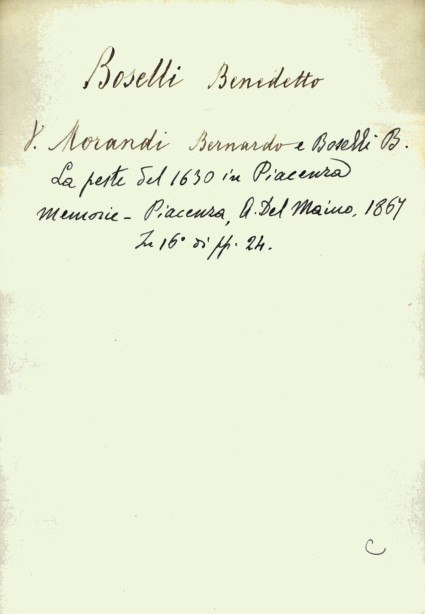 Boselli Benedetto
V. Morandi Bernardo e Boselli B.
La peste del 1630 in Piacenza
Memorie - Piacenza, A. Del Maino, 1867
In 16° di pp. 24.
C